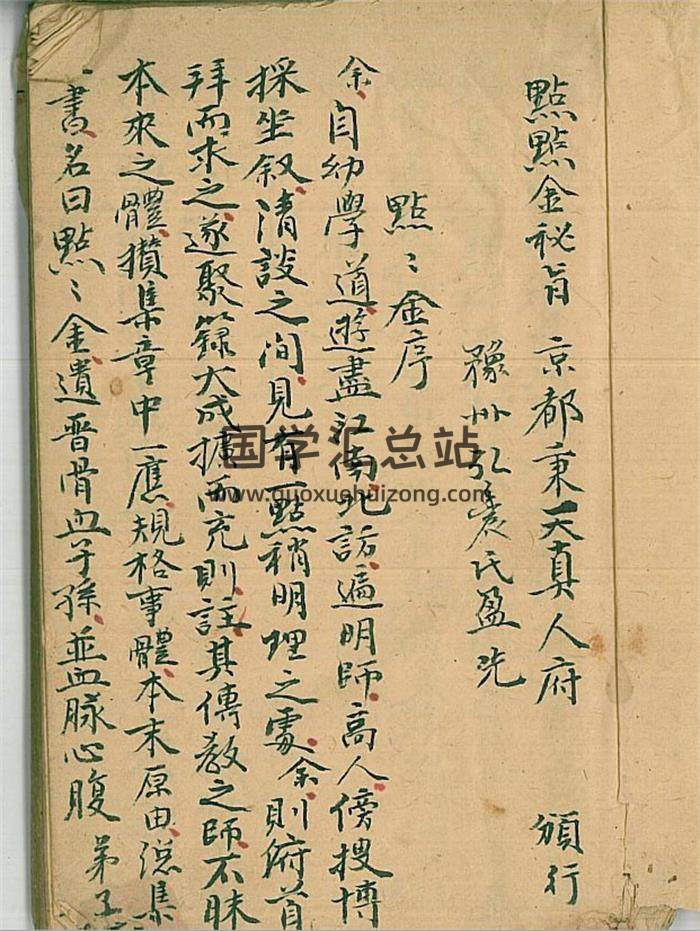 點點金秘旨 京都東天真人府 頒行
豫州弘農氏盈先
點〻金序
余自幼學道遊盡江南北訪遍明師高人傍搜博
採坐叙清談之間見有一點稍明理之處余則俯首
拜而求之遂聚籙大成擴而充則註其傳教之師不昧
本來之體攢集章中一應規格事體本末原由總集
一書名曰點〻金遺晋骨血子孫並血脉心腹 弟子
国学汇总站
www.guoxuehuizong.com